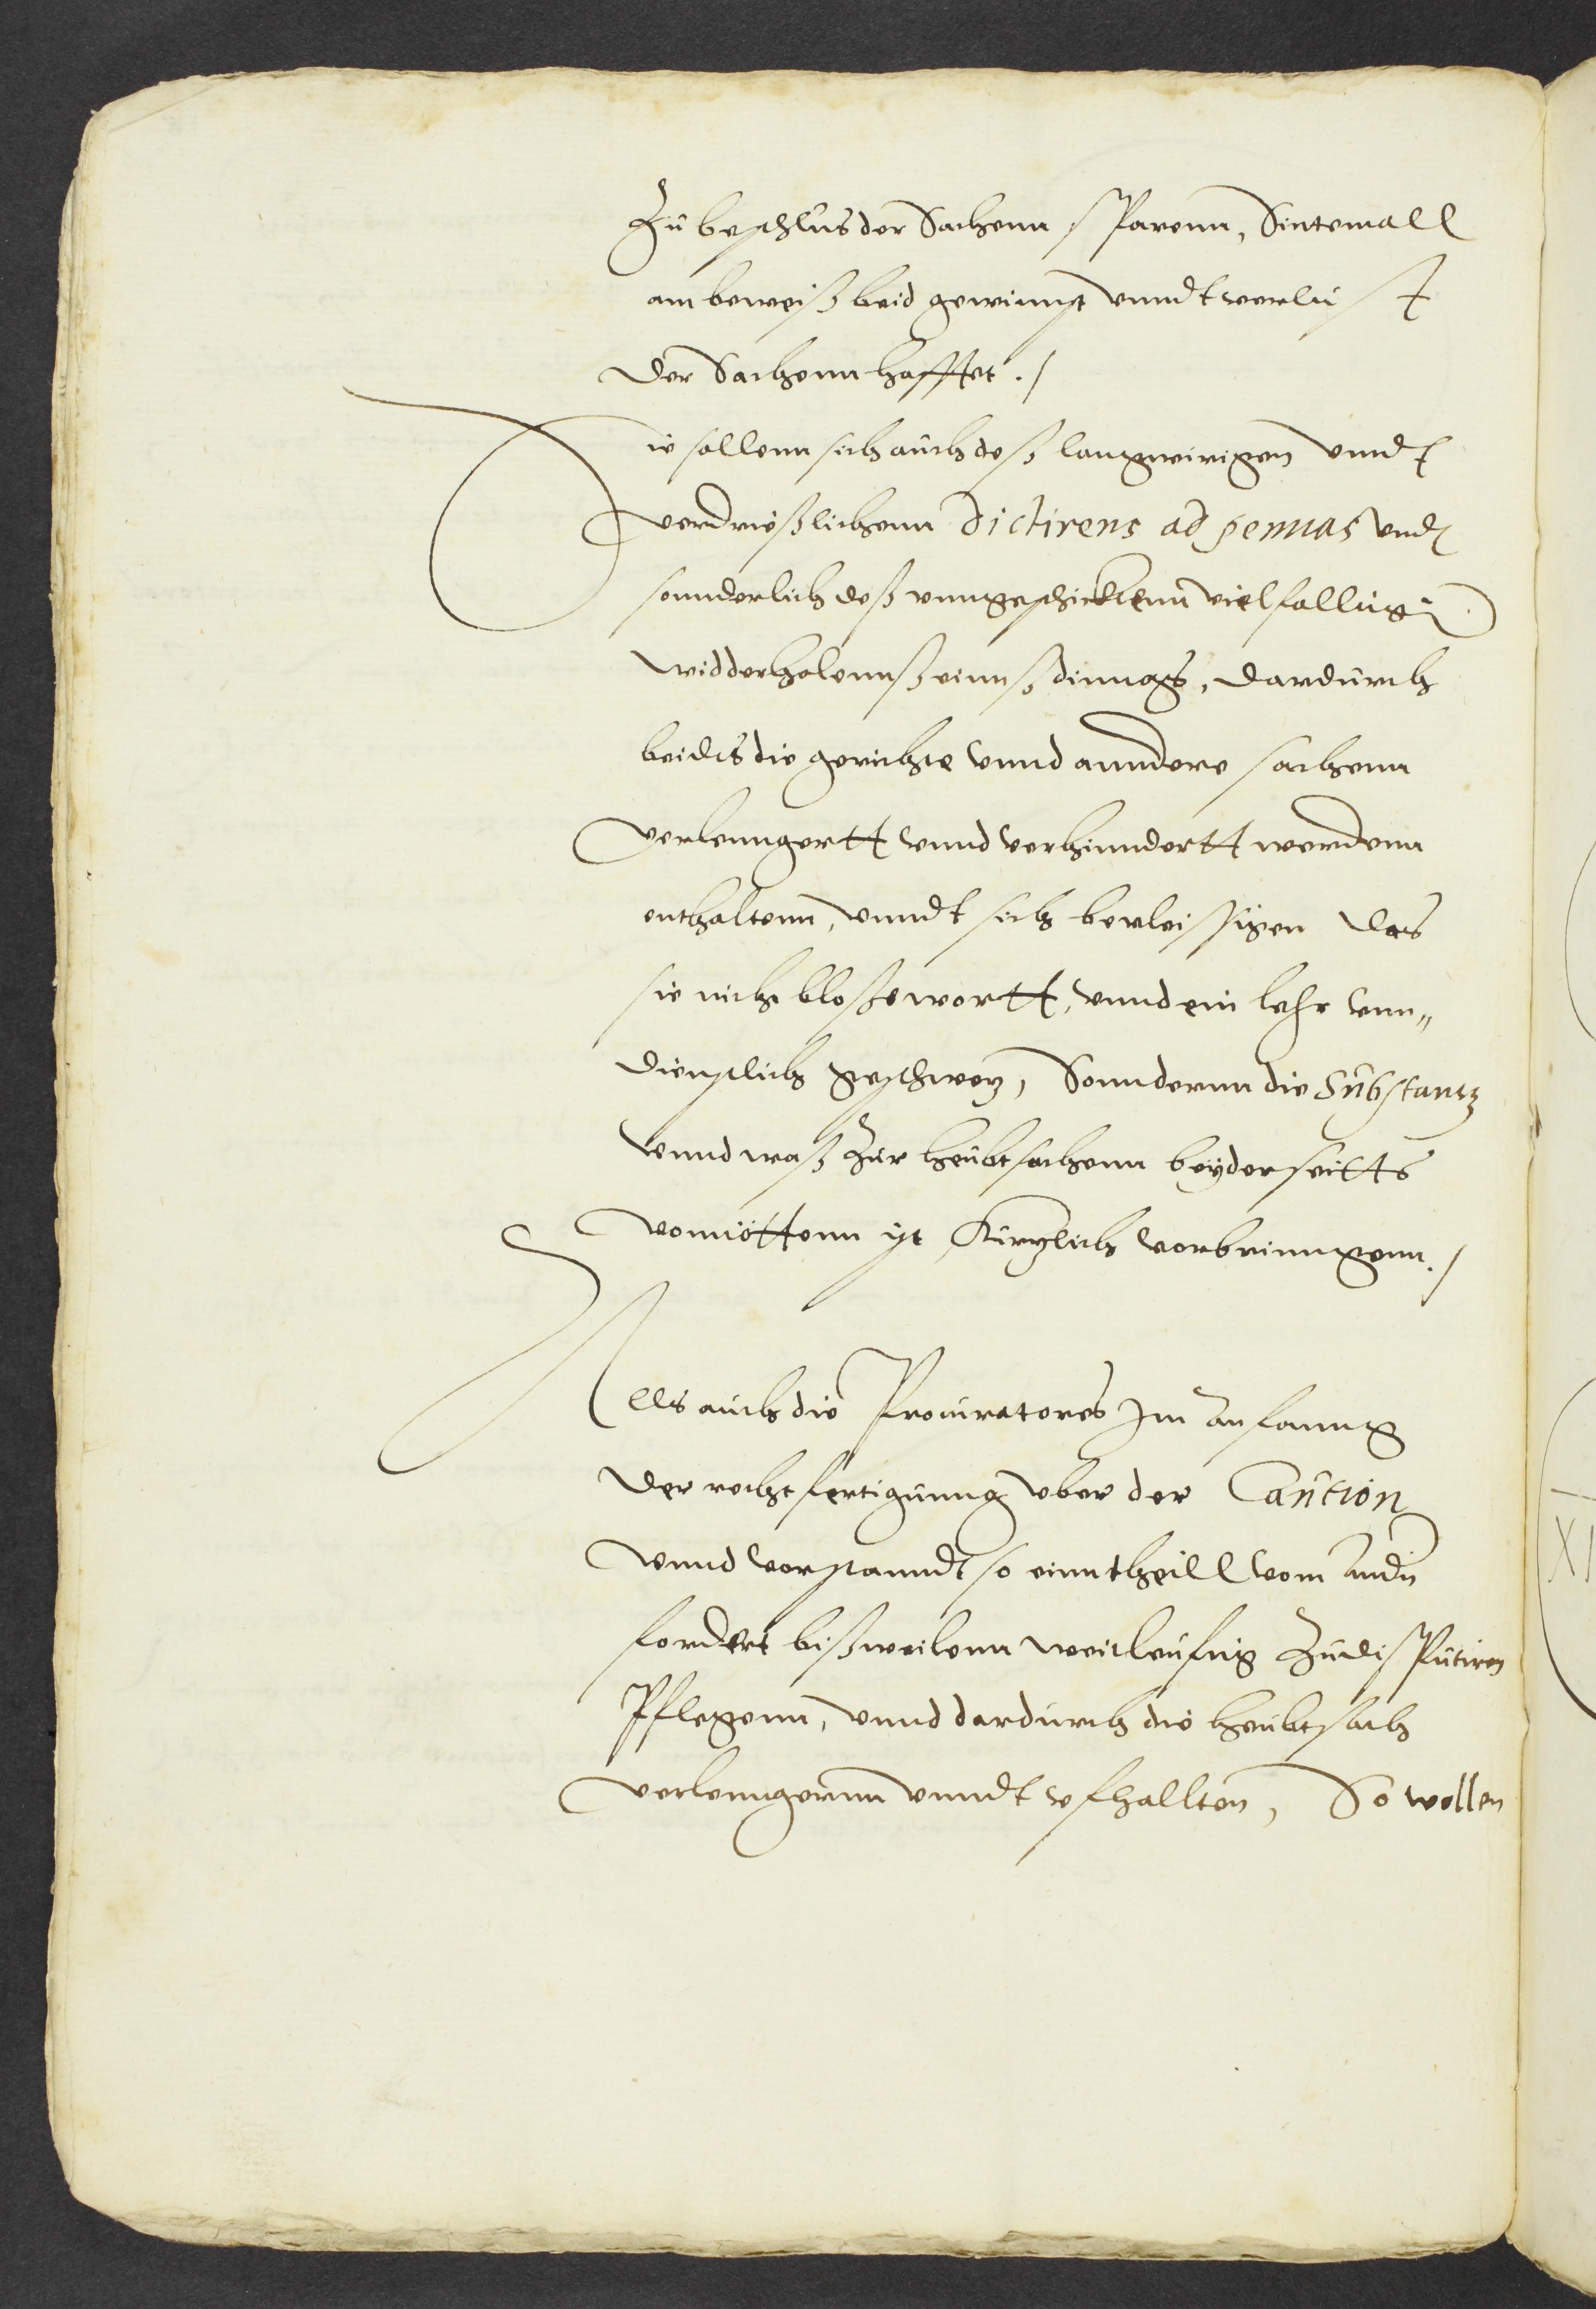 Zu beschlus der Sachenn sparenn, Sintemall
am beweiß beid gewinnst vnnd verlust
der Sachenn hafftet ./
Sie sollenn sich auch deß langweirigen vnndt
verdrießlichenn dictirens ad pennas vnd
sonnderlich deß vnngeschicktenn vielfalltig
widderholennß einnß dinngs, dardurch
beides die gerichte vnnd anndere sachenn
verlenngertt vnnd verhinndertt werdenn
enthaltenn, vnndt sich bevleissigen das
sie nicht bloße wortt, vnnd ein lehr vnn„
dienstlich geschwez, Sonndernn die Substantz
vnnd waß zur heubtsachenn beyderseitts
vonnöttenn ist kurzlich vorbrinngenn ./
Alls auch die Procuratores Im anfanng
der rechtfertigunng vber der Caution
vnnd vorstanndt so einn theill vom andn
fordert bißweilenn weitleuftig zu disputiren
Pflegenn, vnnd dardurch die heubtsach
verlenngernn vnndt vfhallten, So wollen
XI